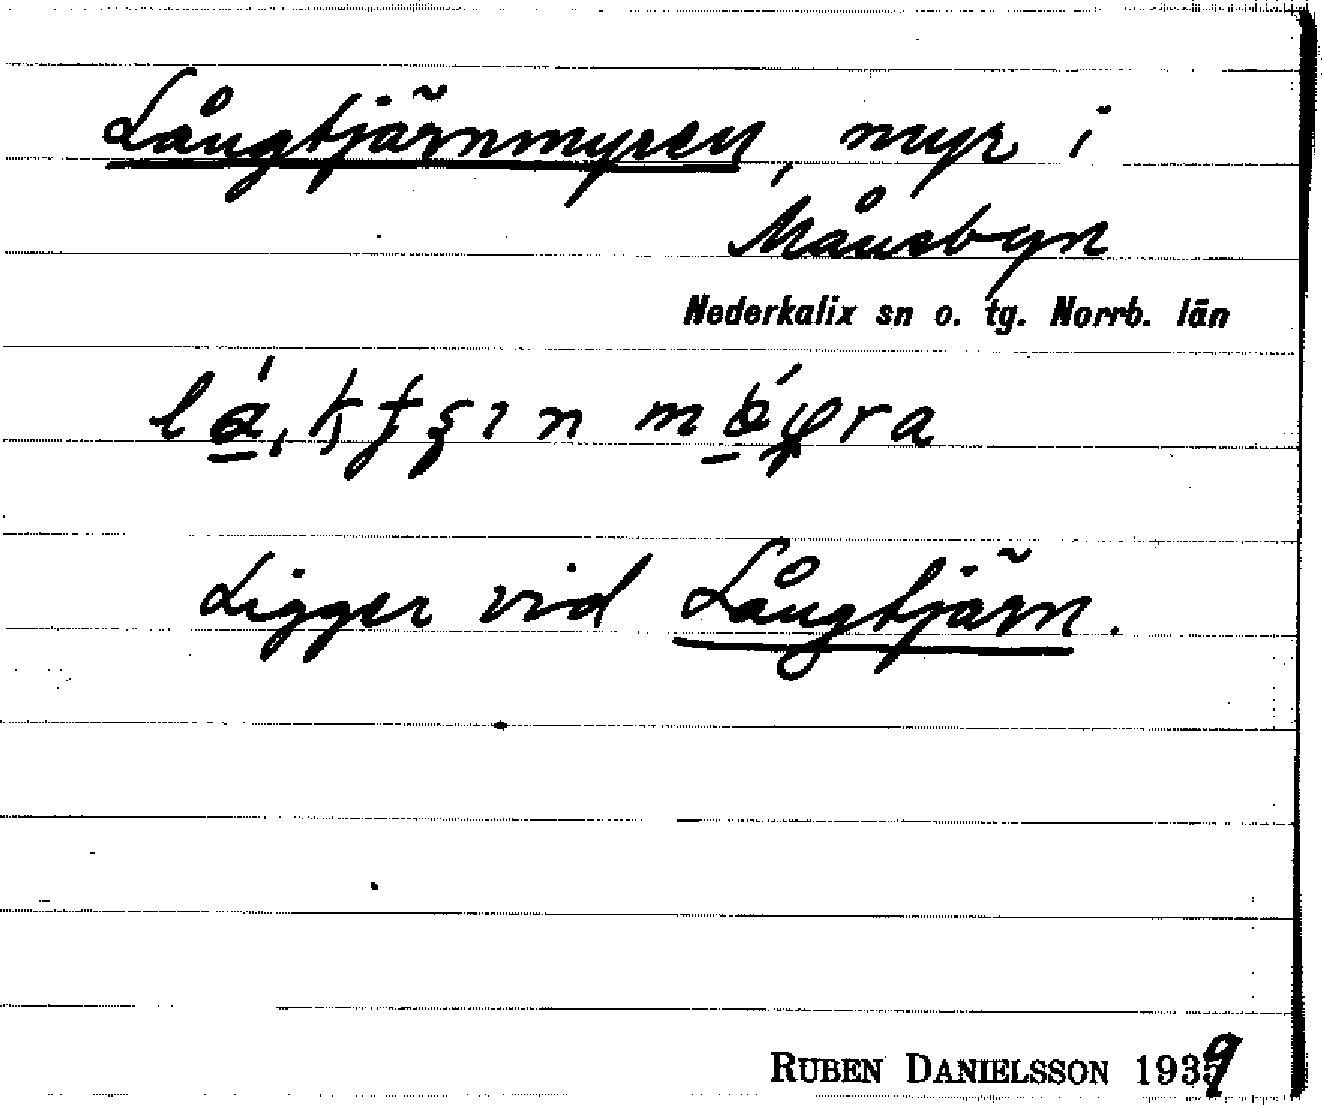 Långtjärnmyren, myr i
Månsbyn
Nederkalix sn o. tg. Norrb. län
Ligger vid Långtjärn.
RUBEN DANIELSSON 1939